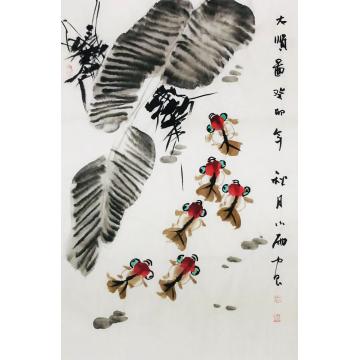 大順圖癸卯年秋月小雨